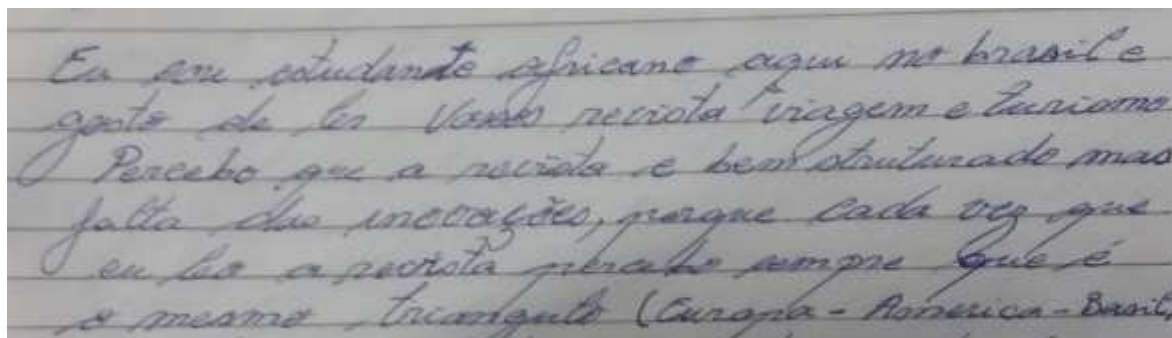 Eu sou estudante africano aqui no brasil e
gosto de ler Vossa revista viagem e turismo
Percebo que a revista e bem struturado mas
falta das inovações, porque cada vez que
eu leo a revista percebo sempre que é
o mesmo triangulo (Europa - America - Brasil,